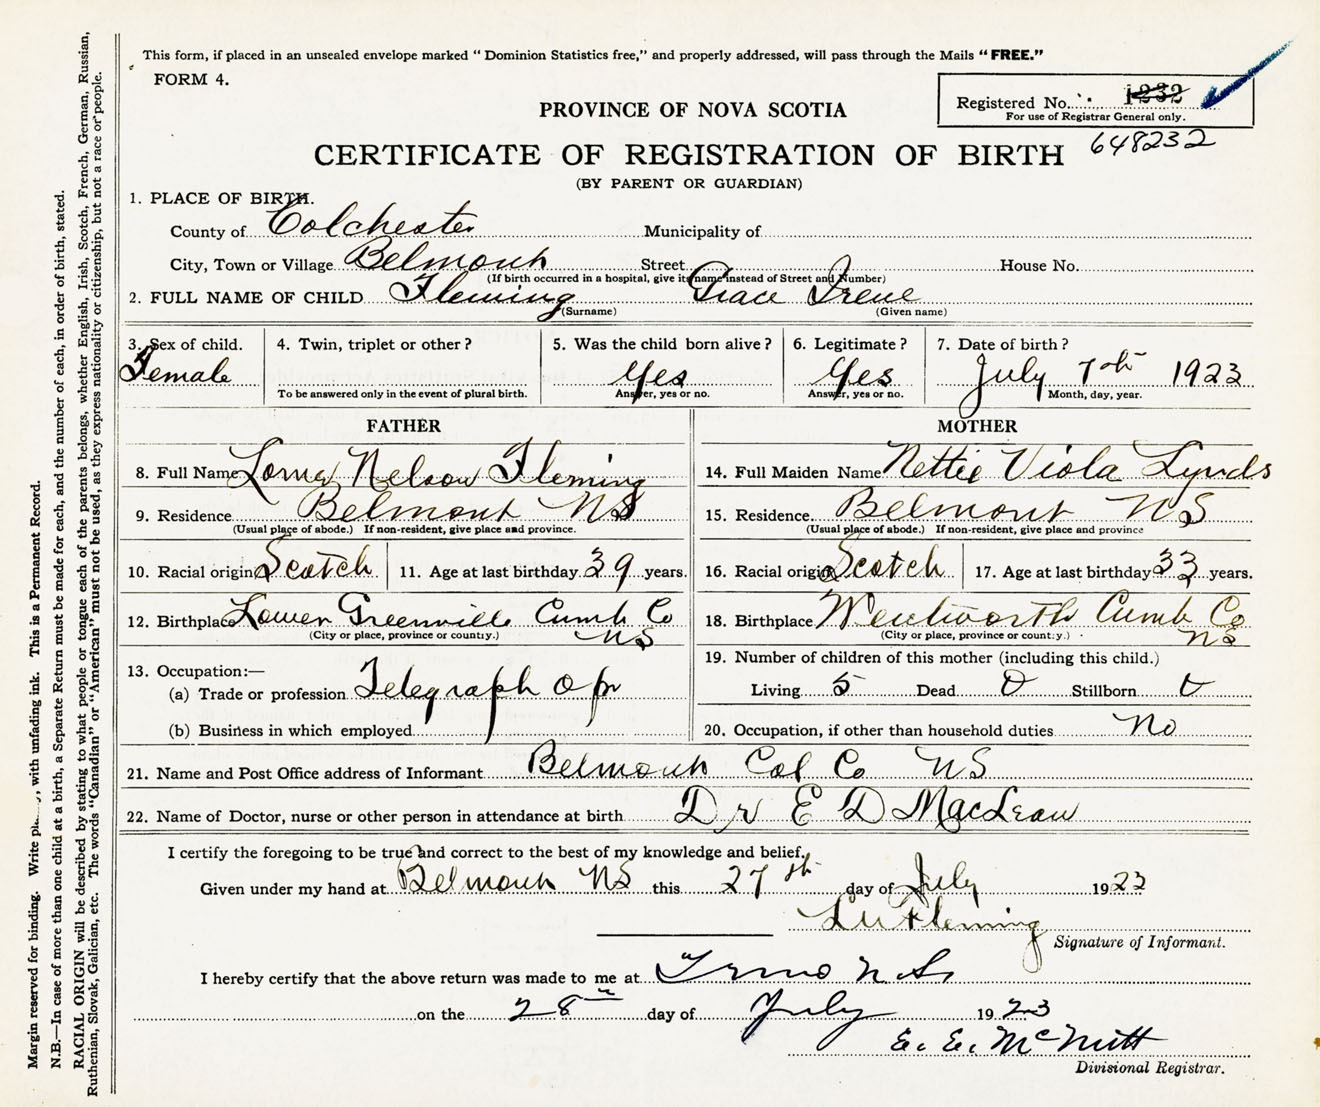 This form, if placed in an unsealed envelope marked " Dominion Statistics free," and properly addressed, will pass through the Mails "FREE."
FORM 4.
Registered No. 1232
For use of Registrar General only.
648232
PROVINCE OF NOVA SCOTIA
CERTIFICATE OF REGISTRATION OF BIRTH
(BY PARENT OR GUARDIAN)
1. PLACE OF BIRTH.
County of Colchester Municipality of
City, Town or Village Belmont Street House No.
(If birth occurred in a hospital, give its name instead of Street and Number)
2. FULL NAME OF CHILD Fleming Grace Irene
(Surname) (Given name)
3. Sex of child. 4. Twin, triplet or other? 5. Was the child born alive? 6. Legitimate? 7. Date of birth?
Female Yes Yes July 7th 1923
To be answered only in the event of plural birth. Answer, yes or no. Answer, yes or no. Month, day, year.
FATHER
8. Full Name Lorne Nelson Fleming
9. Residence Belmont NS
(Usual place of abode.) If non-resident, give place and province.
10. Racial origin Scotch 11. Age at last birthday 39 years.
12. Birthplace Lower Greenville Cumb Co
(City or place, province or country.) NS
13. Occupation:—
(a) Trade or profession Telegraph Opr
(b) Business in which employed
MOTHER
14. Full Maiden Name Nettie Viola Lynds
15. Residence Belmont NS
(Usual place of abode.) If non-resident, give place and province
16. Racial origin Scotch 17. Age at last birthday 33 years.
18. Birthplace Wentworth Cumb Co
(City or place, province or country.) NS
19. Number of children of this mother (including this child.)
Living 5 Dead 0 Stillborn 0
20. Occupation, if other than household duties No
21. Name and Post Office address of Informant Belmont Col Co NS
22. Name of Doctor, nurse or other person in attendance at birth Dr E D MacLean
I certify the foregoing to be true and correct to the best of my knowledge and belief.
Given under my hand at Belmont NS this 27th day of July 1923
L N Fleming
Signature of Informant.
I hereby certify that the above return was made to me at Truro N.S.
on the 28th day of July 1923
E. E. McNutt
Divisional Registrar.
Margin reserved for binding. Write , with unfading ink. This is a Permanent Record.
N.B.—In case of more than one child at a birth, a Separate Return must be made for each, and the number of each, in order of birth, stated.
RACIAL ORIGIN will be described by stating to what people or tongue each of the parents belongs, whether English, Irish, Scotch, French, German, Russian,
Ruthenian, Slovak, Galician, etc. The words "Canadian" or "American" must not be used, as they express nationality or citizenship, but not a race or people.